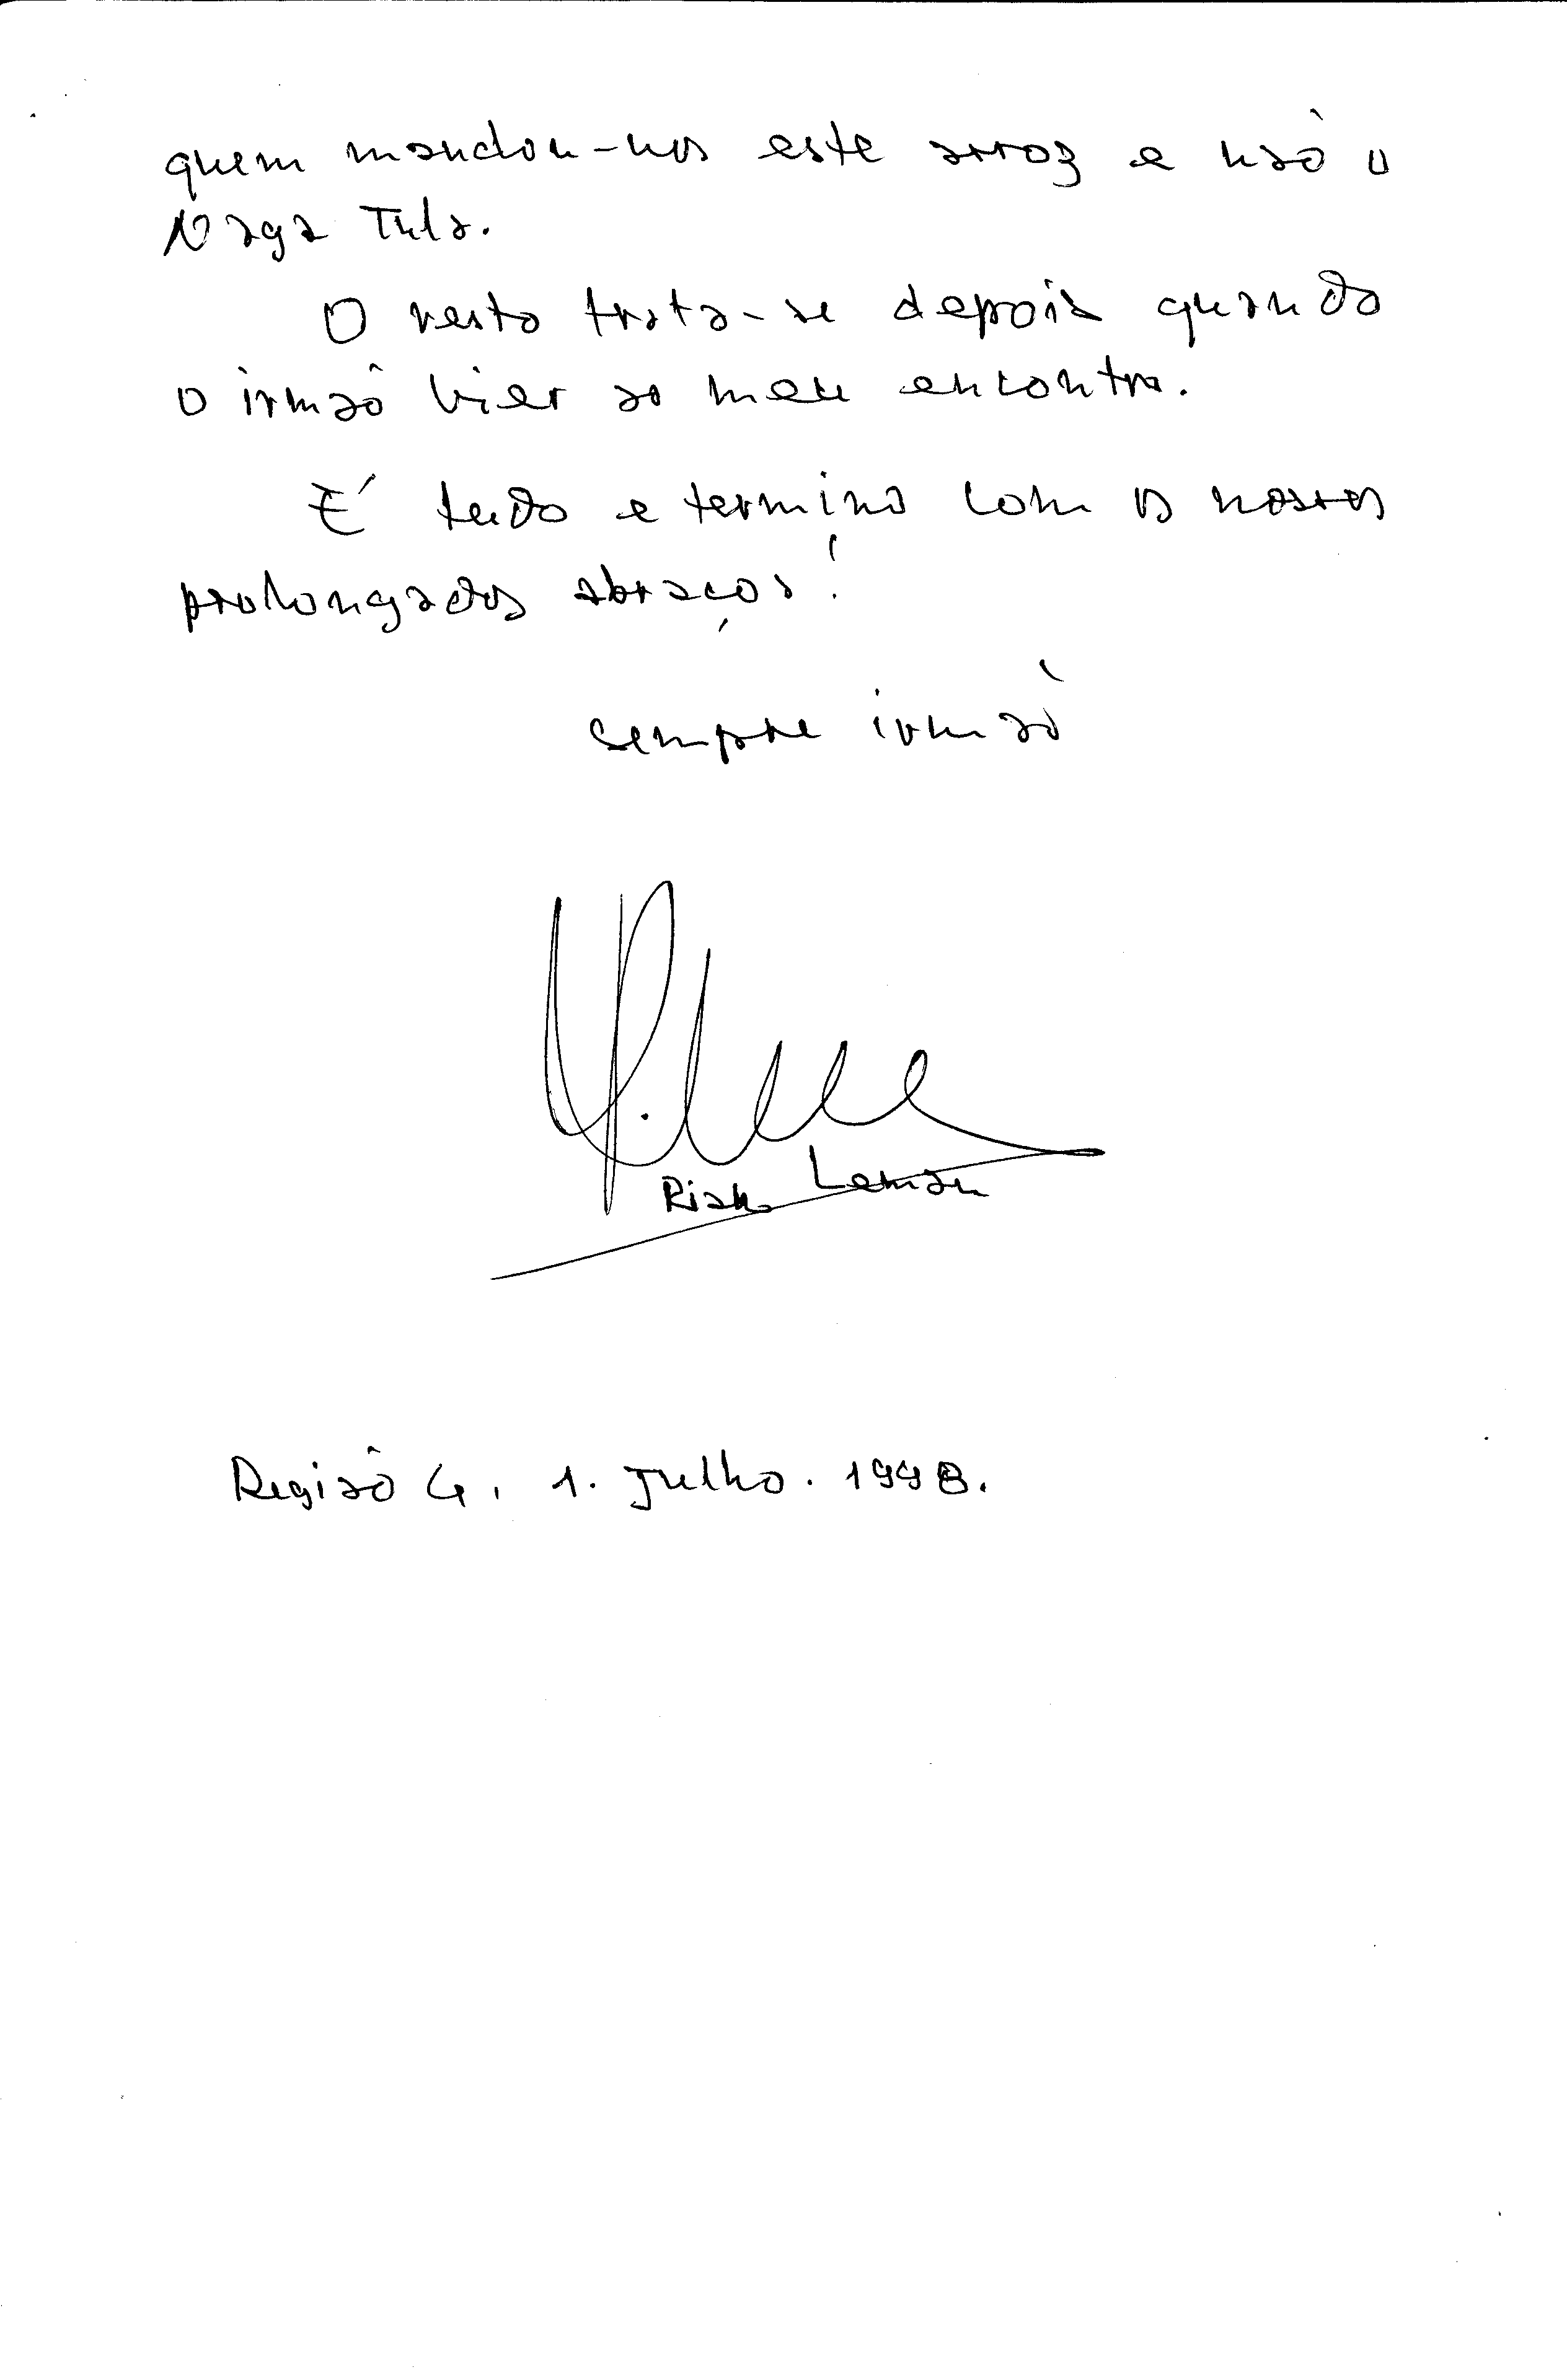 quem mandou-nos este arroz e não o
Naga Tula.
O resto trata-se depois quando
o irmão vier ao meu encontro.
É tudo e termino com os nossos
prolongados abraços!
Sempre irmão
Riak Leman
Região 4, 1. Julho. 1998.